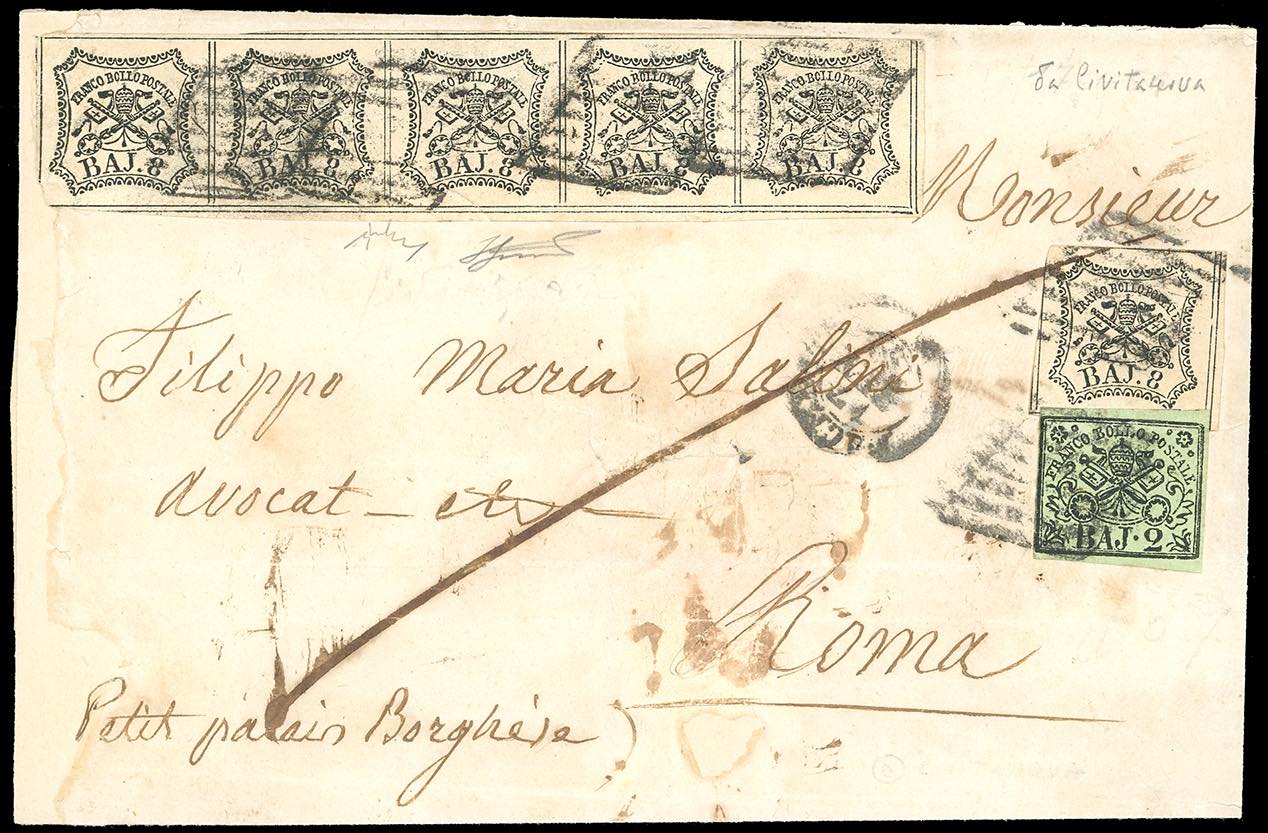 FRANCO BOLLO POSTALE
BAJ. 8
FRANCO BOLLO POSTALE
BAJ. 8
FRANCO BOLLO POSTALE
BAJ. 8
FRANCO BOLLO POSTALE
BAJ. 8
FRANCO BOLLO POSTALE
BAJ. 8
da Civitanova
Monsieur
FRANCO BOLLO POSTALE
BAJ. 8
Filippo Maria Salini
avocat - etc
FRANCO BOLLO POSTALE
BAJ. 2
Roma
Petit palais Borghèse )